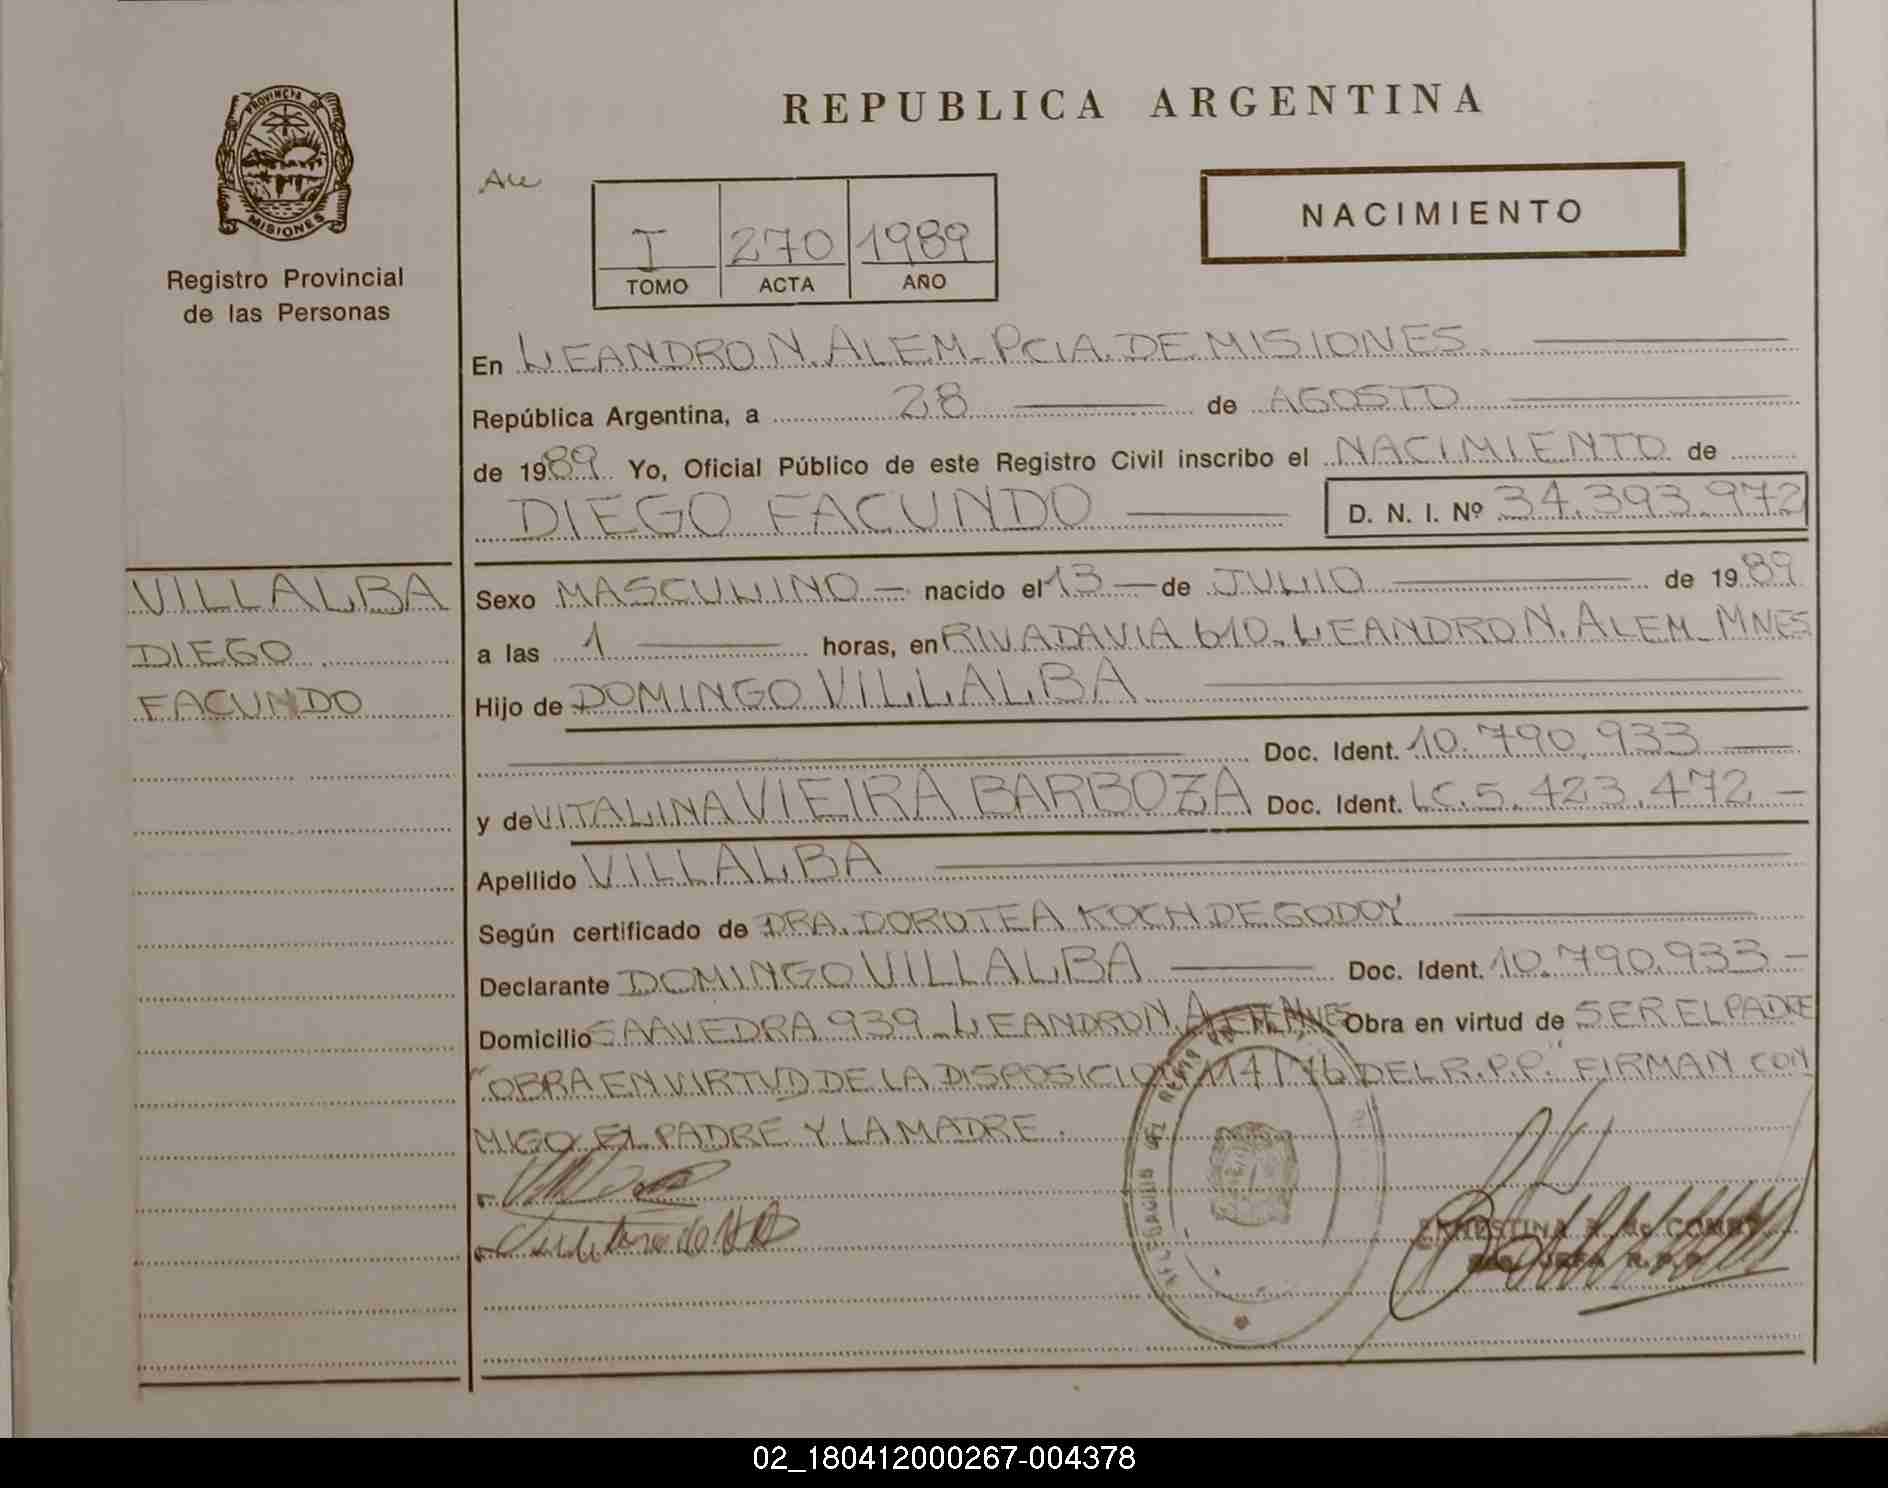 PROVINCIA DE
MISIONES
Registro Provincial
de las Personas
REPUBLICA ARGENTINA
Ale
NACIMIENTO
I 270 1989
TOMO ACTA AÑO
En LEANDRO N. ALEM - PCIA. DE MISIONES
República Argentina, a 28 de AGOSTO
de 1989. Yo, Oficial Público de este Registro Civil inscribo el NACIMIENTO de
DIEGO FACUNDO D. N. I. Nº 34.393.972
VILLALBA
DIEGO
FACUNDO
Sexo MASCULINO — nacido el 13 — de JULIO de 1989
a las 1 horas, en RIVADAVIA 610 - LEANDRO N. ALEM - MNES
Hijo de DOMINGO VILLALBA
Doc. Ident. 10.790.933
y de VITALINA VIEIRA BARBOZA Doc. Ident. LC. 5.423.472 —
Apellido VILLALBA
Según certificado de DRA. DOROTEA KOCH DE GODOY
Declarante DOMINGO VILLALBA Doc. Ident. 10.790.933 —
Domicilio SAAVEDRA 939 - LEANDRO N. ALEM MNES Obra en virtud de SER EL PADRE
"OBRA EN VIRTUD DE LA DISPOSICION 114/76 DEL R.P.P." FIRMAN CON
MIGO EL PADRE Y LA MADRE.
ERNESTINA
JEFA R.P.P.
02_180412000267-004378